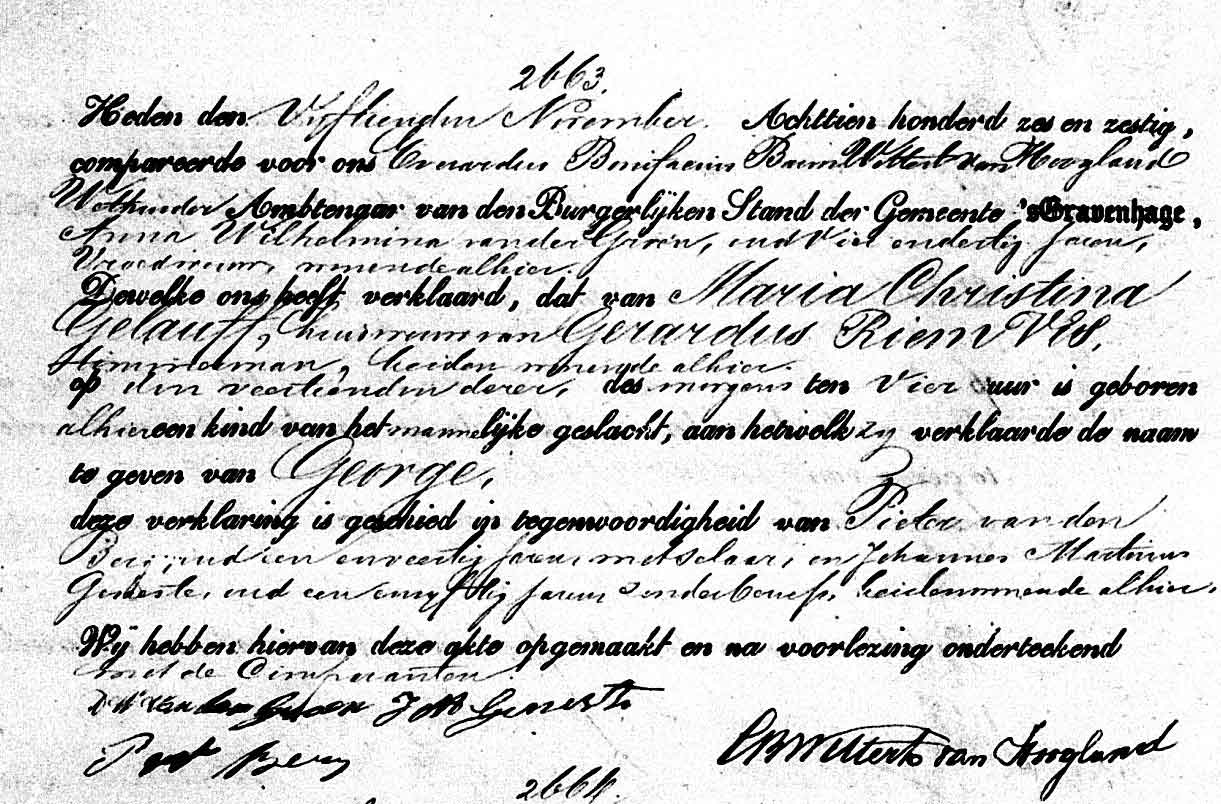 2663.
Heden den Vijftienden November. Achttien honderd zes en zestig,
compareerde voor ons Everardus Bonifacius Baron Wittert van Hoogland
Wethouder Ambtenaar van den Burgerlijken Stand der Gemeente 'sGravenhage,
Anna Wilhelmina van der, oud Vier en dertig Jaren,
Vroedvrouw, wonende alhier.
Dewelke ons heeft verklaard, dat van Maria Christina
Gelauff, huisvrouw van Gerardus Riem Vis,
timmerman, beiden wonende alhier.
op den veertienden dezer, des morgens ten Vier uur is geboren
alhier een kind van het mannelijke geslacht, aan hetwelk zij verklaarde de naam
te geven van George.
deze verklaring is geschied in tegenwoordigheid van Pieter van den
Berg, oud een en veertig Jaren, metselaar, en Johannes Martinus
oud een en vijftig Jaren zonder beroep, beiden wonende alhier.
Wij hebben hiervan deze akte opgemaakt en na voorlezing onderteekend
met de Comparanten.
van der J M
P vd Berg
EBWittert van Hoogland
2664.